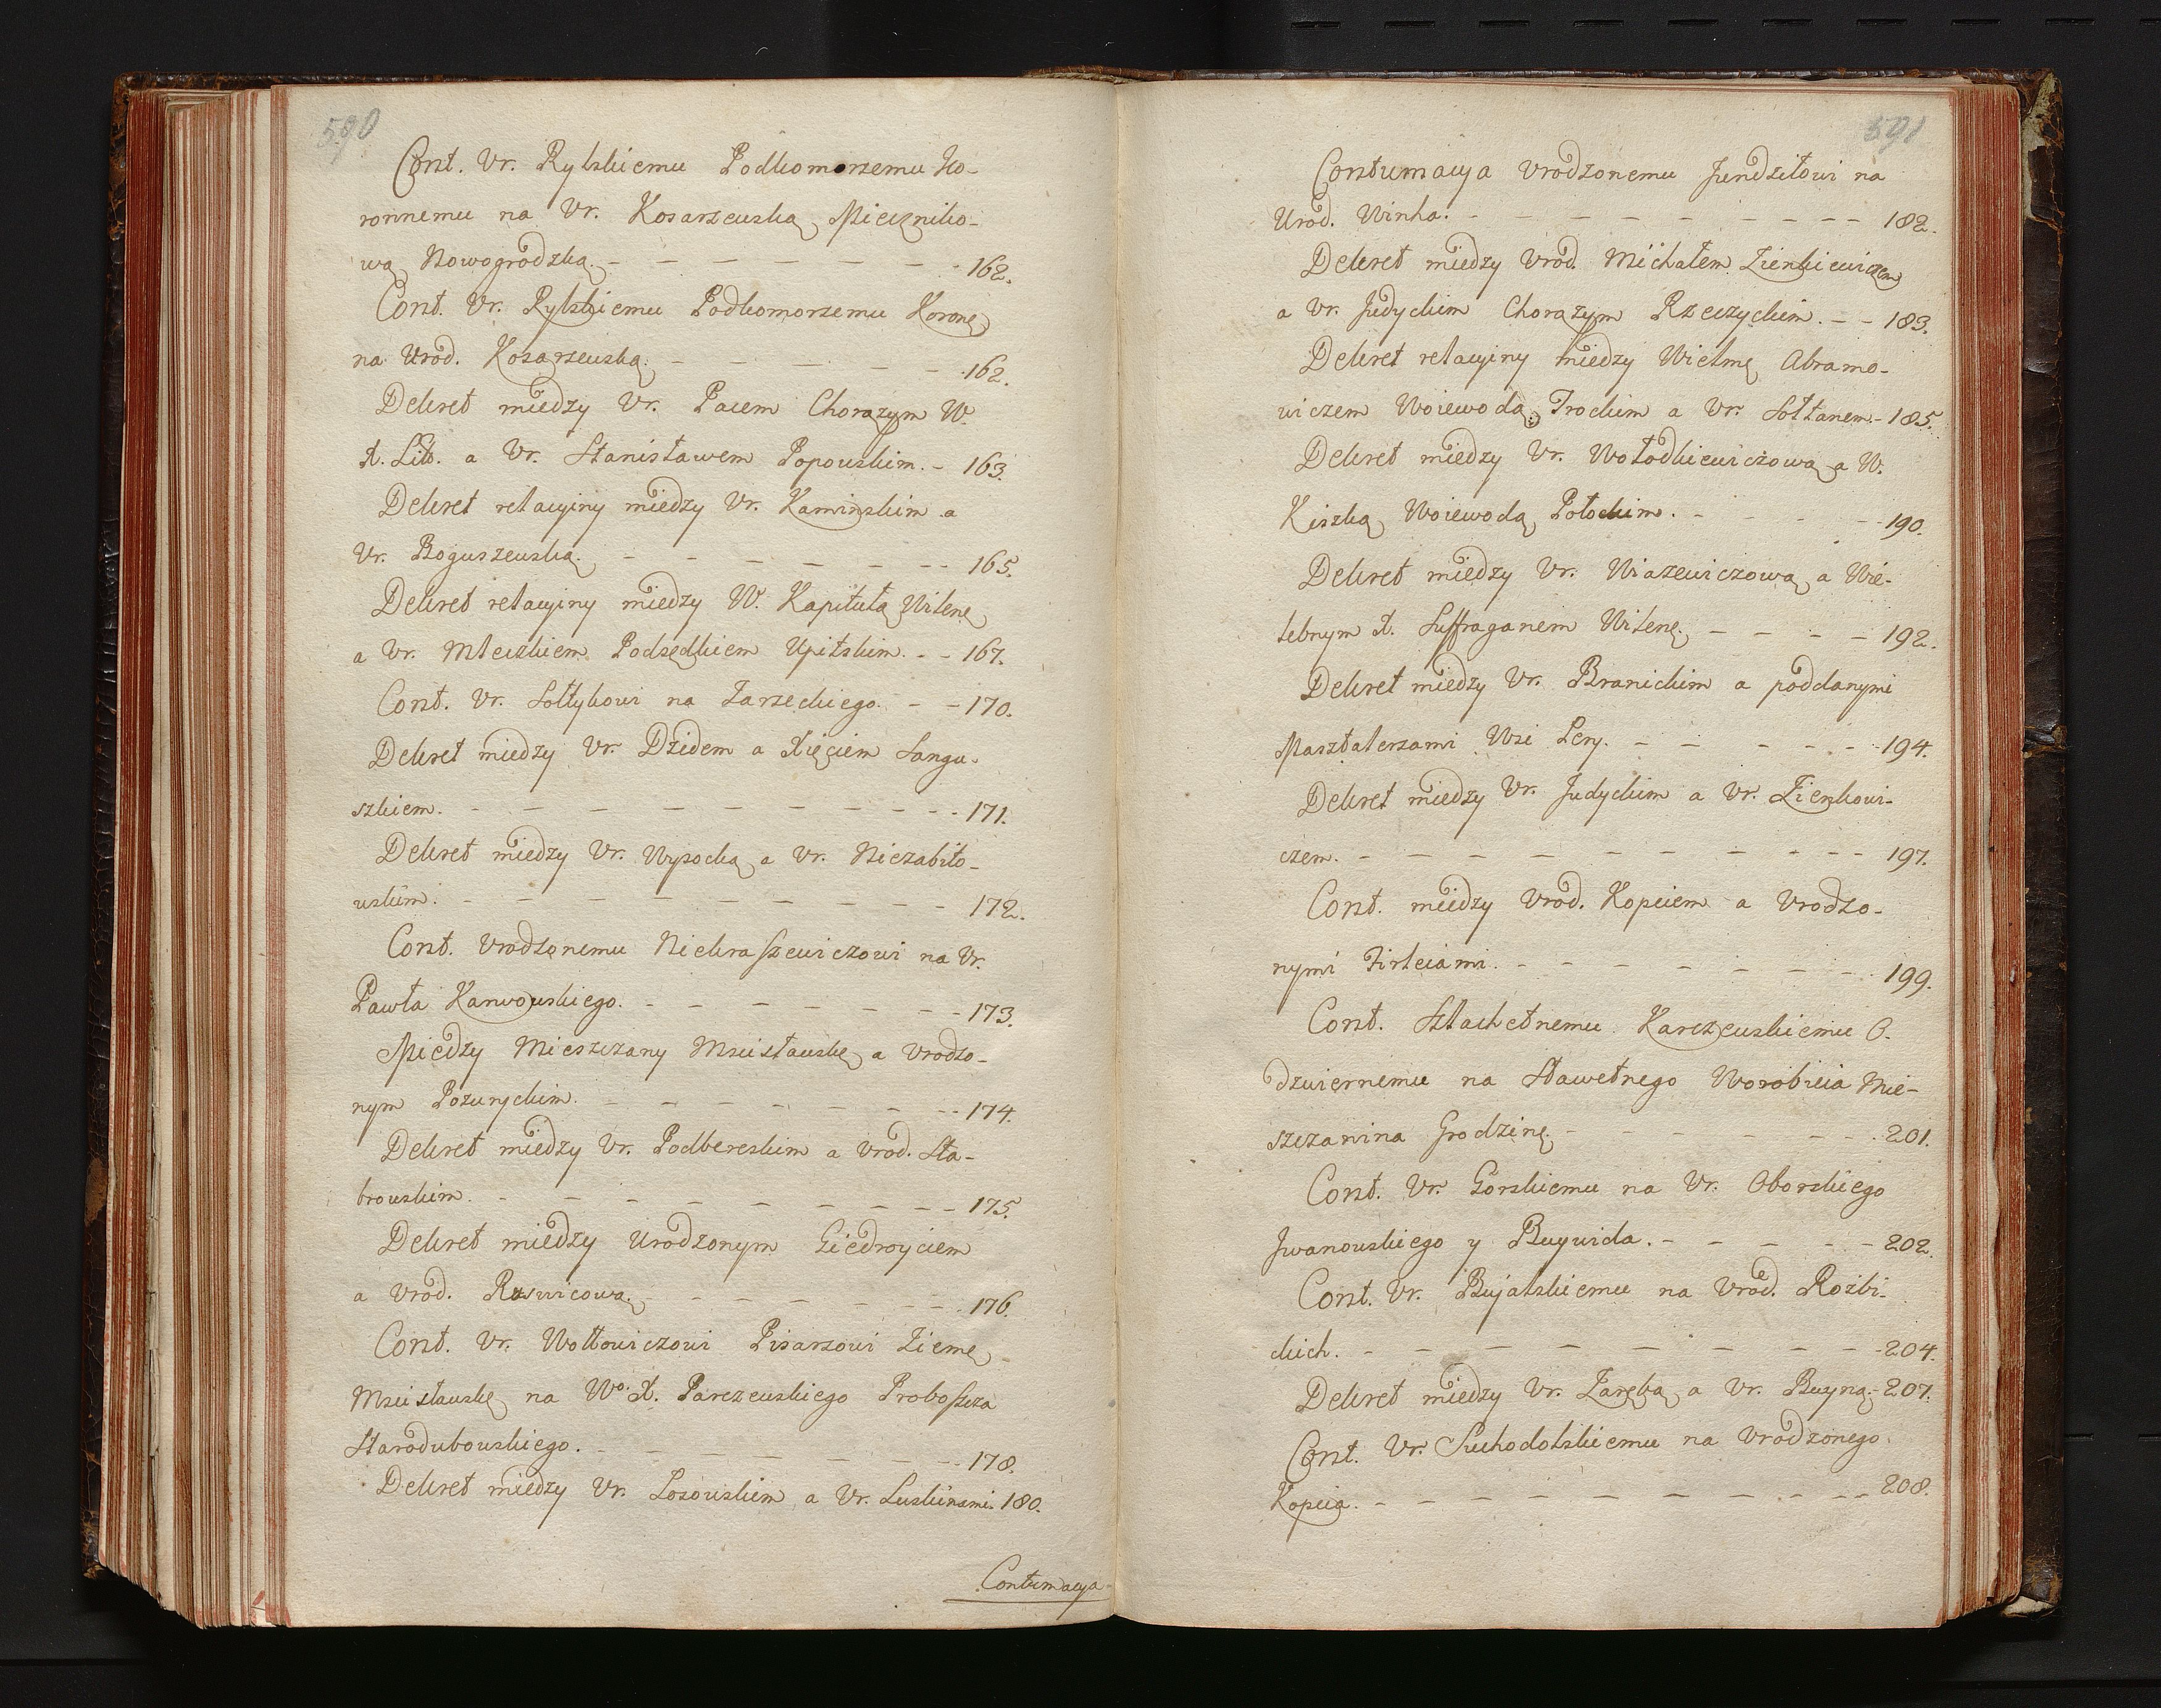 590
Cont. Vr. Rylskiemu Podkomorzemu Ko-
ronnemu na Vr. Kosarzewską Mieczniko-
wą Nowogrodzką. - - - - - - - 162.
Cont. Vr. Rylskiemu Podkomorzemu Koronę
na Urod. Kosarzewską. - - - - - 162.
Dekret między Vr. Pacem Chorązym W.
X. Lith. a Vr. Stanisławem Popowskim. - 163.
Dekret relacyiny między Vr. Kaminskim a
Vr. Boguszewską. - - - - - - - 165.
Dekret relacyiny między W. Kapitułą Wilenę
a Vr. Mleczkiem Podsędkiem Upitskim. - - 167.
Cont. Vr. Sołtykowi na Zarzeckiego. - - 170.
Dekret między Vr. Dzidem a Xięciem Sangu-
szkiem. - - - - - - - - - - 171.
Dekret między Vr. Wysocką a Vr. Niezabito-
wskim. - - - - - - - - - - 172.
Cont. Vrodzonemu Niekraszewiczowi na Vr.
Pawła Karwowskiego. - - - - - - - 173.
Między Mieszczany Mscisławskę a Vrodzo-
nym Pozuryckim. - - - - - - - - 174.
Dekret między Vr. Podbereskim a Vrod. Sta-
browskim. - - - - - - - - - 175.
Dekret między Urodzonym Giedroyciem
a Vrod. Roswicową. - - - - - - - 176.
Cont. Vr. Wołłowiczowi Pisarzowi Ziemę
Mscisławskę na Wo. X. Parczewskiego Proboszcza
Starodubowskiego. - - - - - - - 178.
Dekret między Vr. Sosowskim a Vr. Luskinami. 180.
Contumacya
591
Contumacya Vrodzonemu Jundziłowi na
Urod. Winka. - - - - - - - - - 182.
Dekret między Vrod. Michałem Zienkiewiczem
a Vr. Judyckim Chorązym Rzeczyckim. - - 183.
Dekret relacyiny między Wielmę Abramo-
wiczem Woiewodą Trockim a Vr. Sołtanem. - 185.
Dekret między Vr. Wołodkiewiczową a W.
Kiszką Woiewodą Połockim. - - - - 190.
Dekret między Vr. Wiazewiczową a Wie-
lebnym X. Suffraganem Wilenę. - - - - 192.
Dekret między Vr. Branickim a poddanymi
Masztalerzami Wsi Lery. - - - - - 194.
Dekret między Vr. Judyckim a Vr. Zienkowi-
czem. - - - - - - - - - - 197.
Cont. między Vrod. Kopciem a Vrodzo-
nymi Firleiami. - - - - - - - - 199.
Cont. Szlachetnemu Karczewskiemu O-
dzwiernemu na Sławetnego Worobieia Mie-
szczanina Grodzinę. - - - - - - - 201.
Cont. Vr. Gorskiemu na Vr. Oborskiego
Iwanowskiego y Buywida. - - - - - 202.
Cont. Vr. Bujalskiemu na Vrod. Rozbi-
ckich. - - - - - - - - - - 204.
Dekret między Vr. Zarębą a Vr. Buyną. - 207.
Cont. Vr. Suchodolskiemu na Vrodzonego
Kopcia. - - - - - - - - - 208.